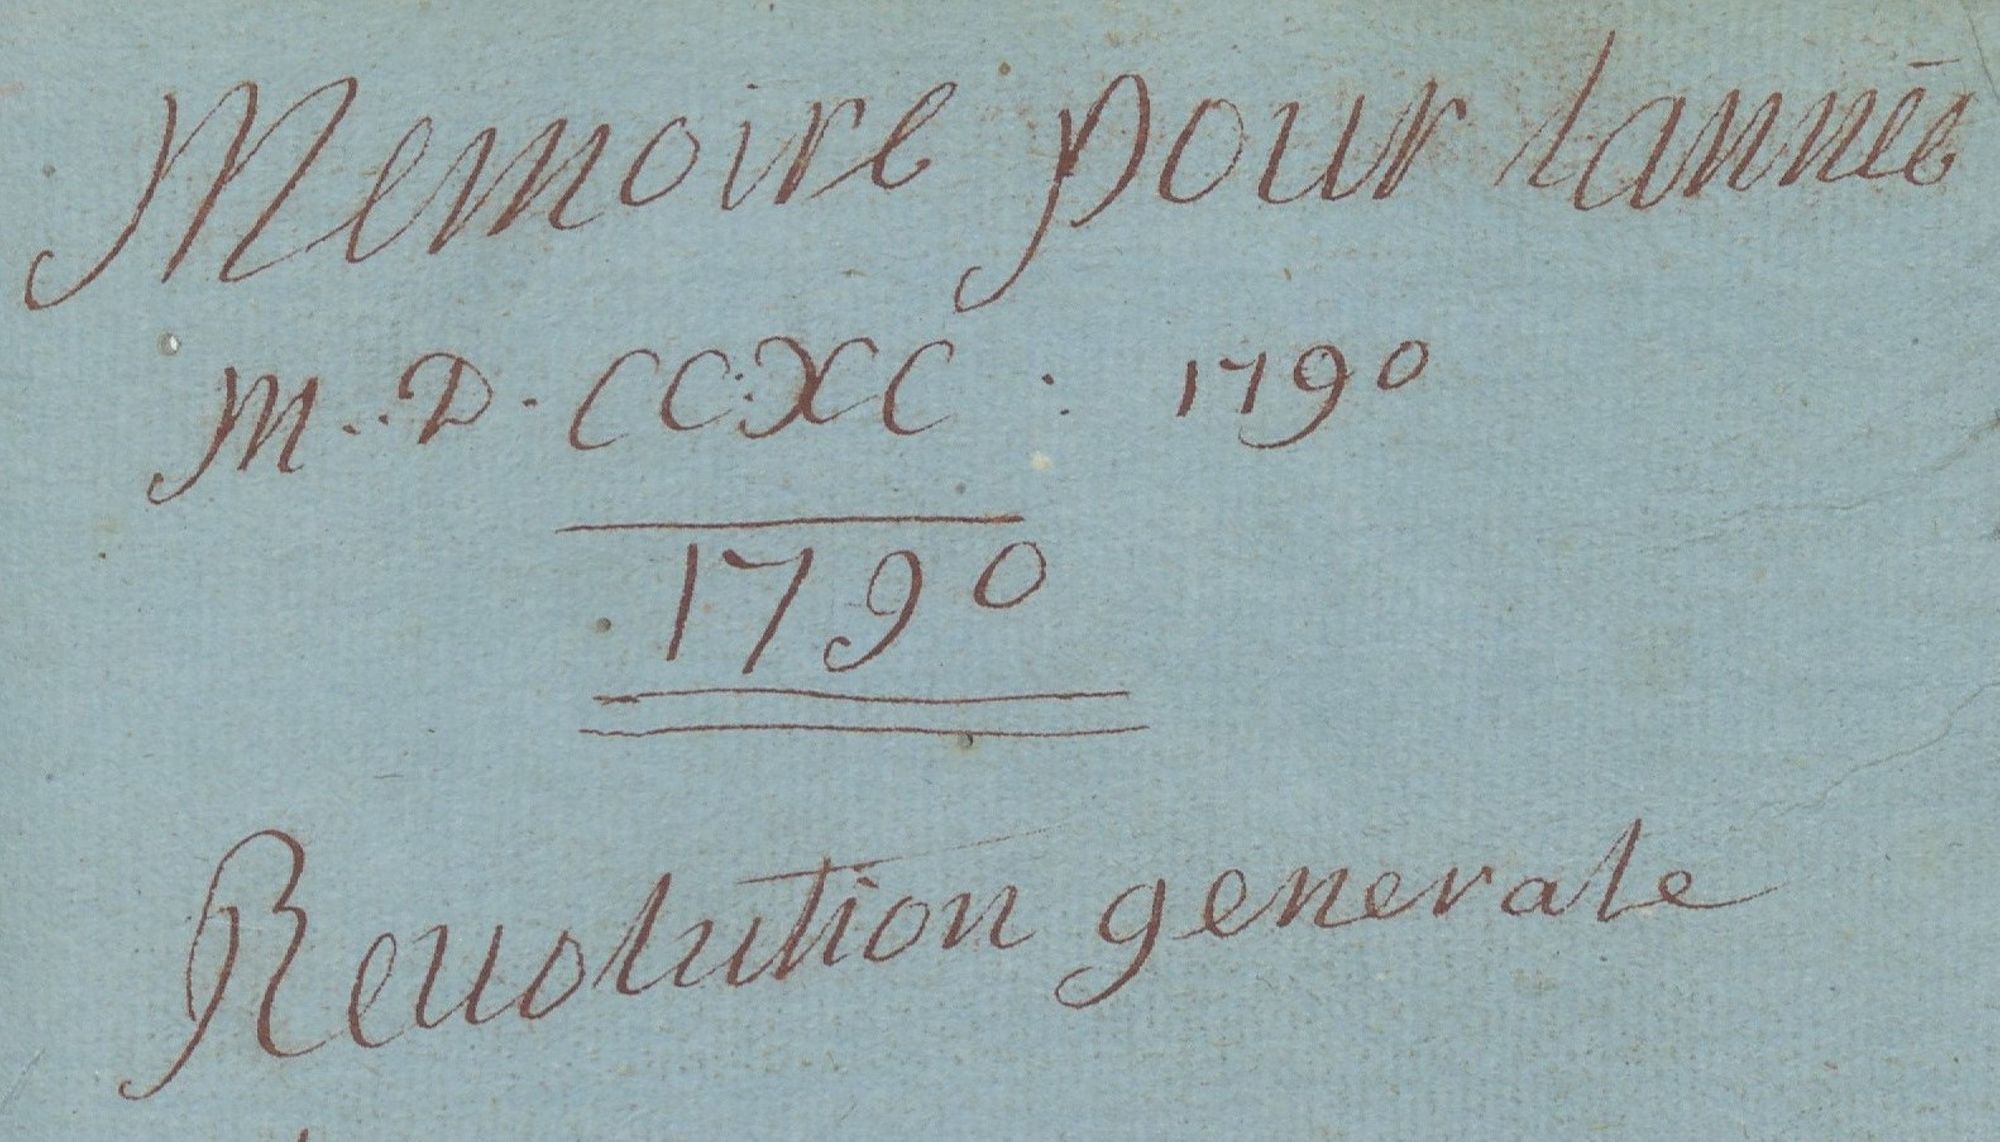 Memoire pour lanneē
M..D. CC:XC : 1790
1790
Revolution generale